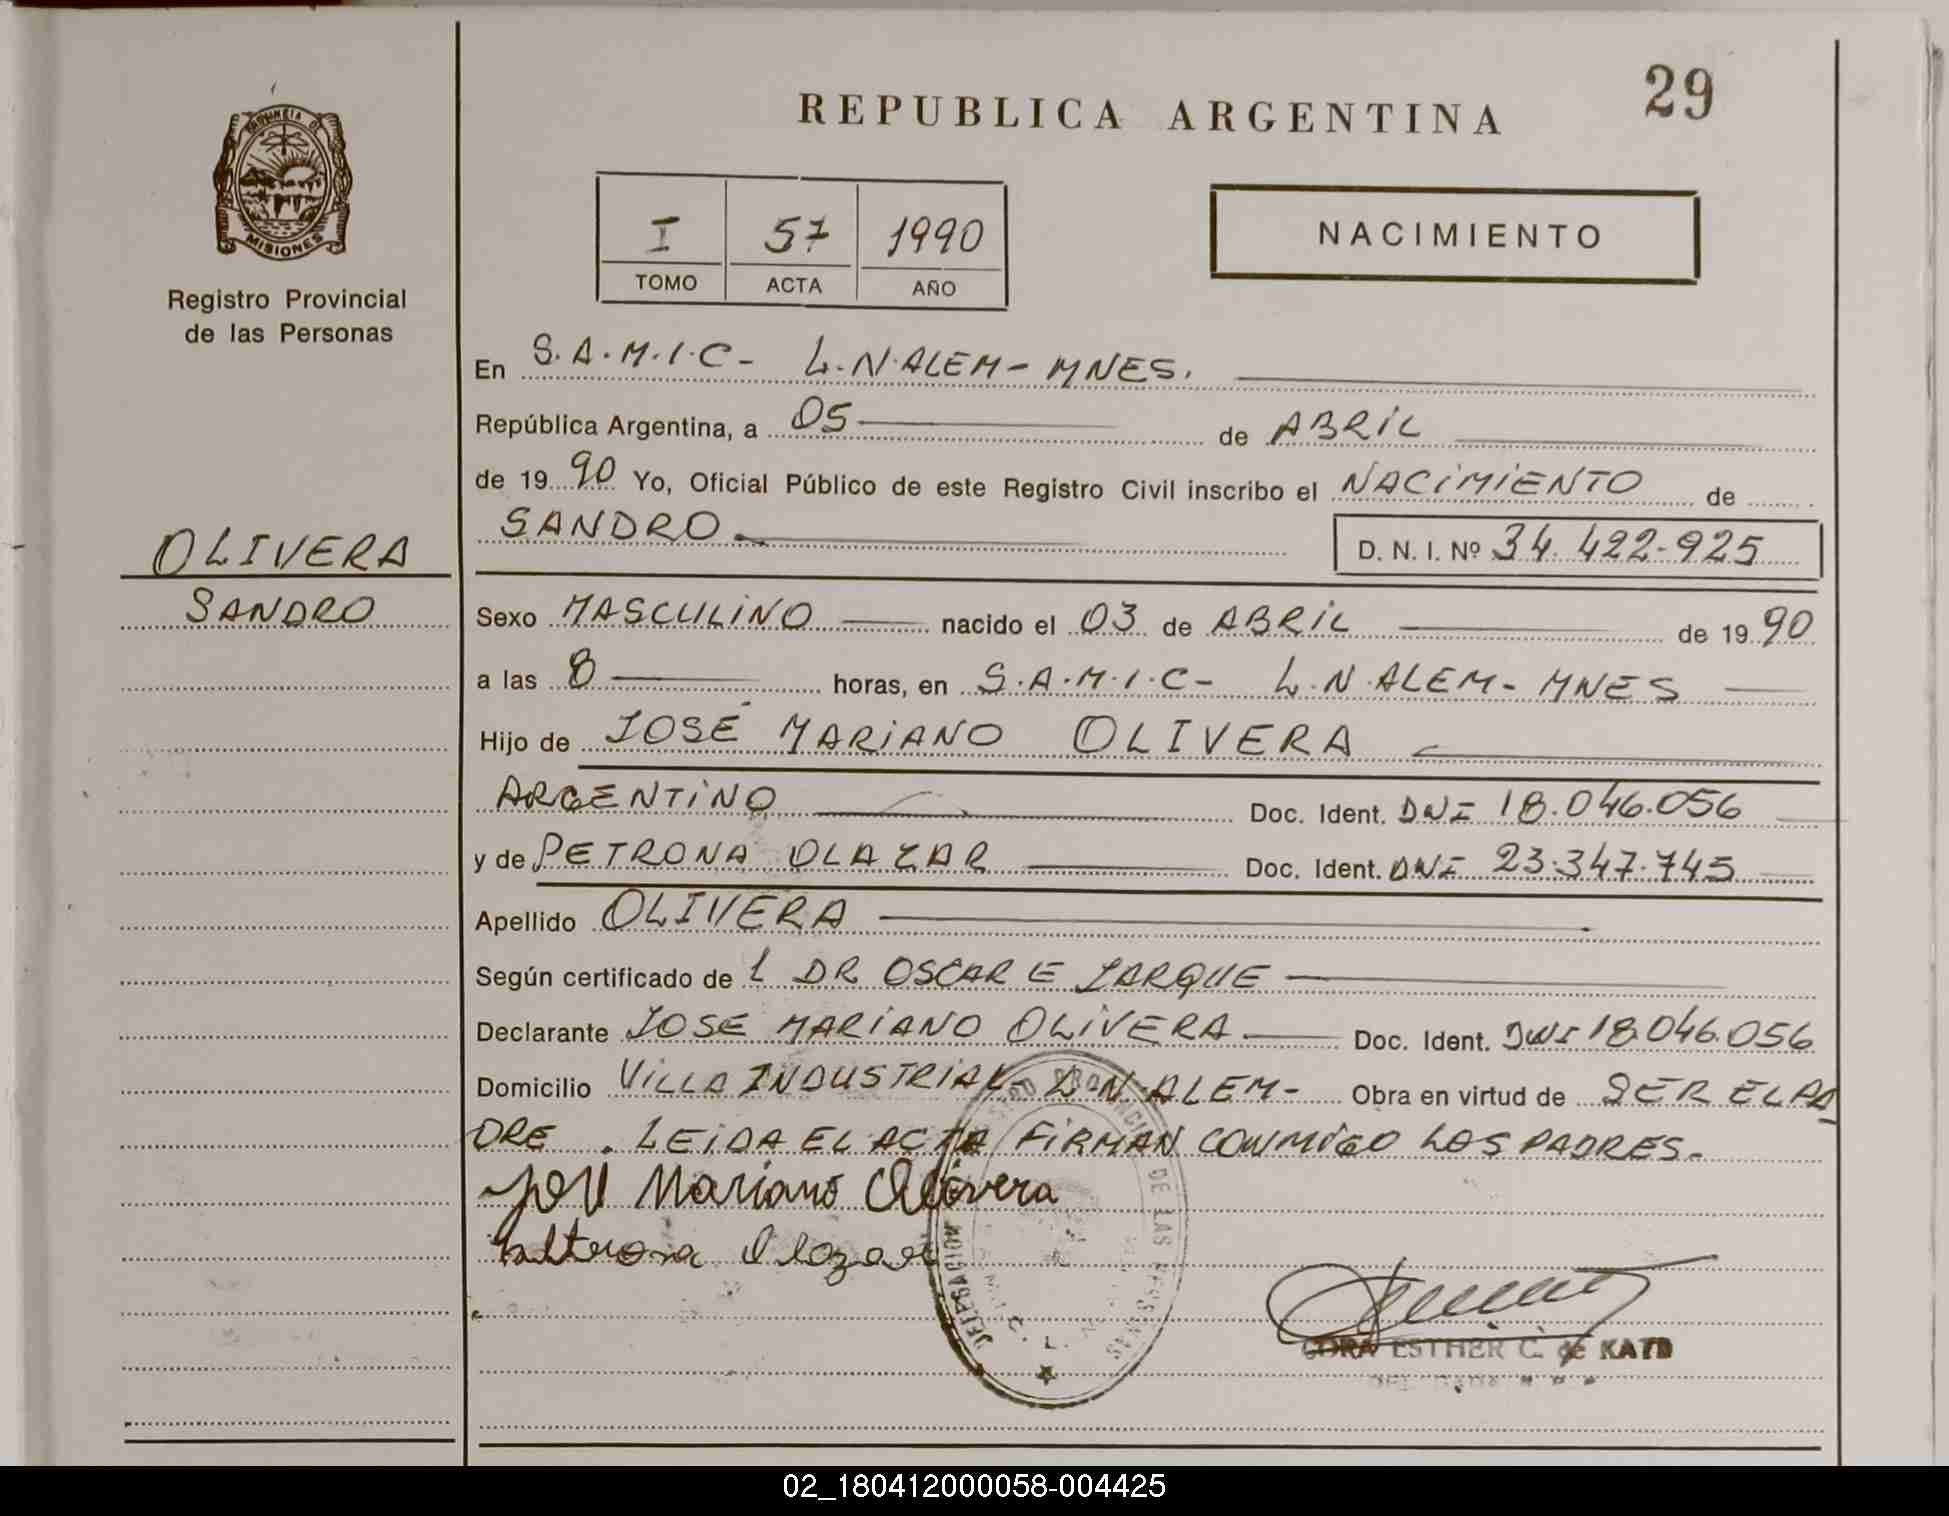 29
REPUBLICA ARGENTINA
PROVINCIA DE
MISIONES
Registro Provincial
de las Personas
I 57 1990
TOMO ACTA AÑO
NACIMIENTO
En S.A.M.I.C- L.N.ALEM- MNES.
República Argentina, a 05 de ABRIL
de 1990 Yo, Oficial Público de este Registro Civil inscribo el NACIMIENTO de
SANDRO D. N. I. Nº 34.422-925
OLIVERA
SANDRO
Sexo MASCULINO nacido el 03 de ABRIL de 1990
a las 8 horas, en S.A.M.I.C- L.N.ALEM- MNES
Hijo de JOSÉ MARIANO OLIVERA
ARGENTINO Doc. Ident. DNI 18.046.056
y de PETRONA OLAZAR Doc. Ident. DNI 23.347.745
Apellido OLIVERA
Según certificado de L DR OSCAR E JARQUE
Declarante JOSE MARIANO OLIVERA Doc. Ident. DNI 18.046.056
Domicilio VILLA INDUSTRIAL- L N ALEM- Obra en virtud de SER EL PA
DRE . LEIDA EL ACTA FIRMAN CONMIGO LOS PADRES.
José Mariano Olivera
Olazar
DELEGACION DE LAS PERSONAS
CORA ESTHER C. de KATD
02_180412000058-004425